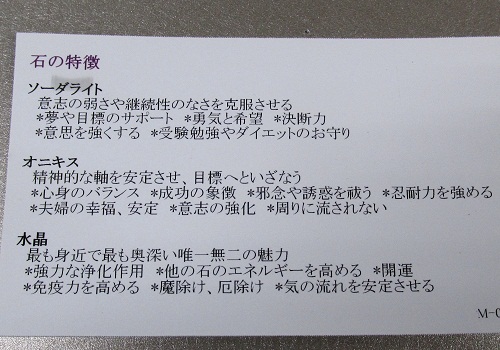 石の特徴
ソーダライト
意志の弱さや継続性のなさを克服させる
*夢や目標のサポート *勇気と希望 *決断力
*意思を強くする *受験勉強やダイエットのお守り
オニキス
精神的な軸を安定させ、目標へといざなう
*心身のバランス *成功の象徴 *邪念や誘惑を祓う *忍耐力を強める
*夫婦の幸福、安定 *意志の強化 *周りに流されない
水晶
最も身近で最も奥深い唯一無二の魅力
*強力な浄化作用 *他の石のエネルギーを高める *開運
*免疫力を高める *魔除け、厄除け *気の流れを安定させる